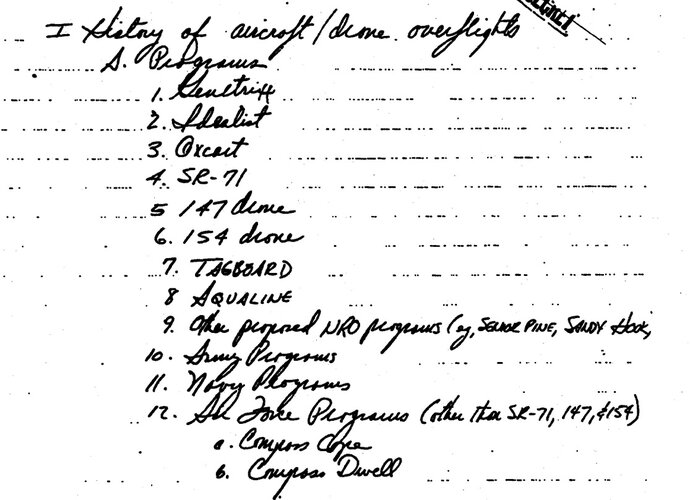 I History of aircraft/drone overflights
A. Programs
1. Genetrix
2. Idealist
3. Oxcart
4. SR-71
5 147 drone
6. 154 drone
7. TAGBOARD
8 AQUALINE
9. Other proposed NRO programs (eg, SENIOR PINE, SANDY HOOK,
10. Army Programs
11. Navy Programs
12. Air Force Programs (other than SR-71, 147, & 154)
a. Compass Cope
b. Compass Dwell